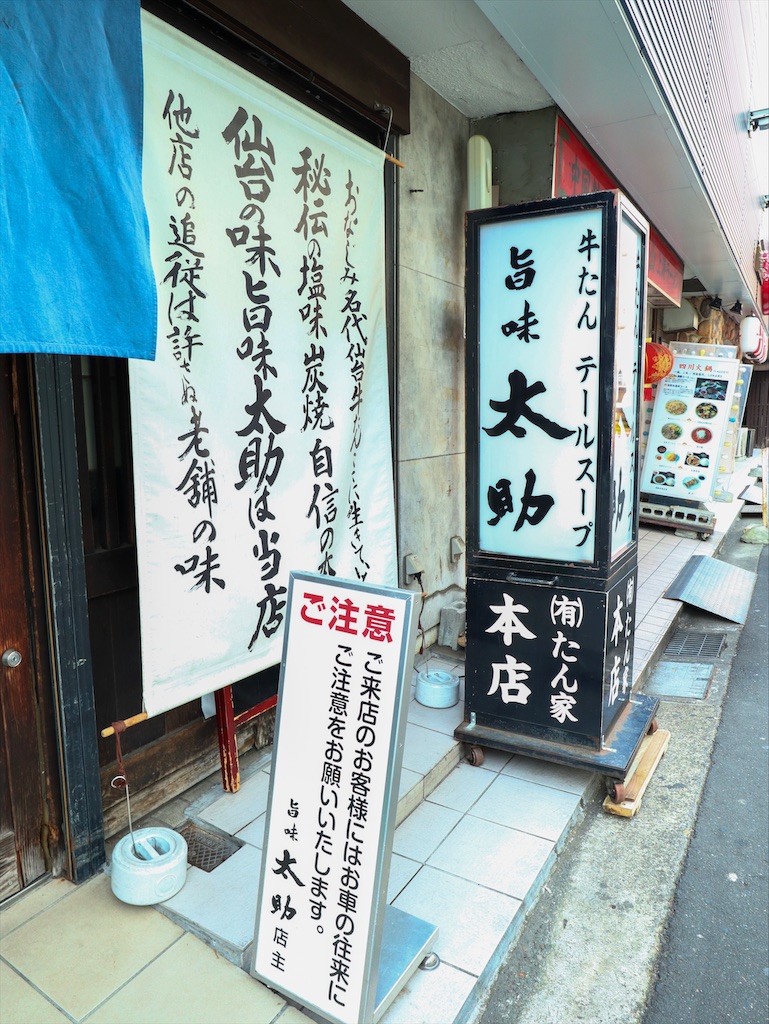 おなじみ名代仙台牛たんに生きてい
秘伝の塩味炭焼自信の
仙台の味旨味太助は当店
他店の追従は許さぬ老舗の味
牛たん テールスープ
旨味
太助
㈲たん家
本店
本店
ご注意
ご来店のお客様にはお車の往来に
ご注意をお願いいたします。
旨味
太助
店主
四川火鍋